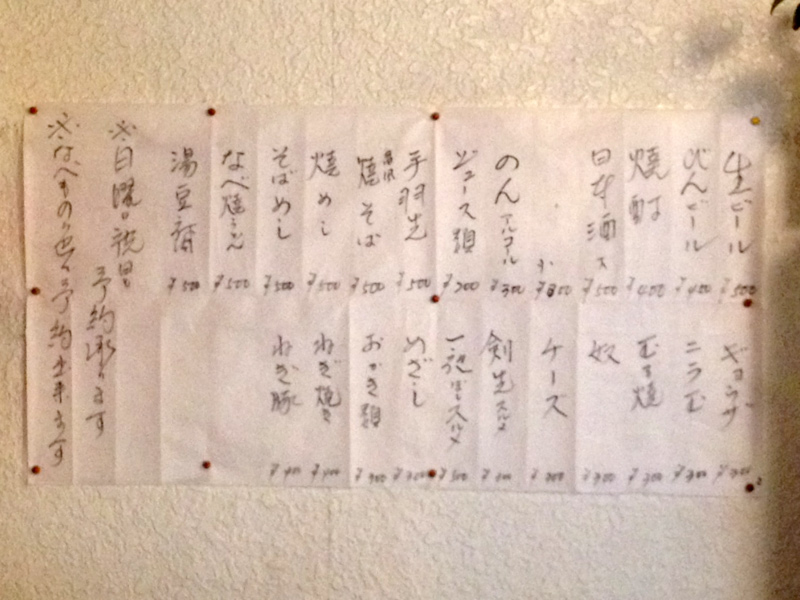 生ビール ¥500
びんビール ¥400
焼酎 ¥400
日本酒 大 ¥500
小 ¥300
のんアルコール ¥300
ジュース類 ¥200
手羽先 ¥500
焼そば ¥500
焼めし ¥500
そばめし ¥500
なべ焼うどん ¥500
湯豆腐 ¥500
ギョウザ
ニラ玉 ¥300
玉子焼 ¥300
奴
チーズ
剣先スルメ
一夜ぼしスルメ ¥500
めざし
おかき類
ねぎ焼き ¥400
ねぎ豚 ¥400
※日曜日祝日も
予約承ります
※なべもの色々予約出来ます